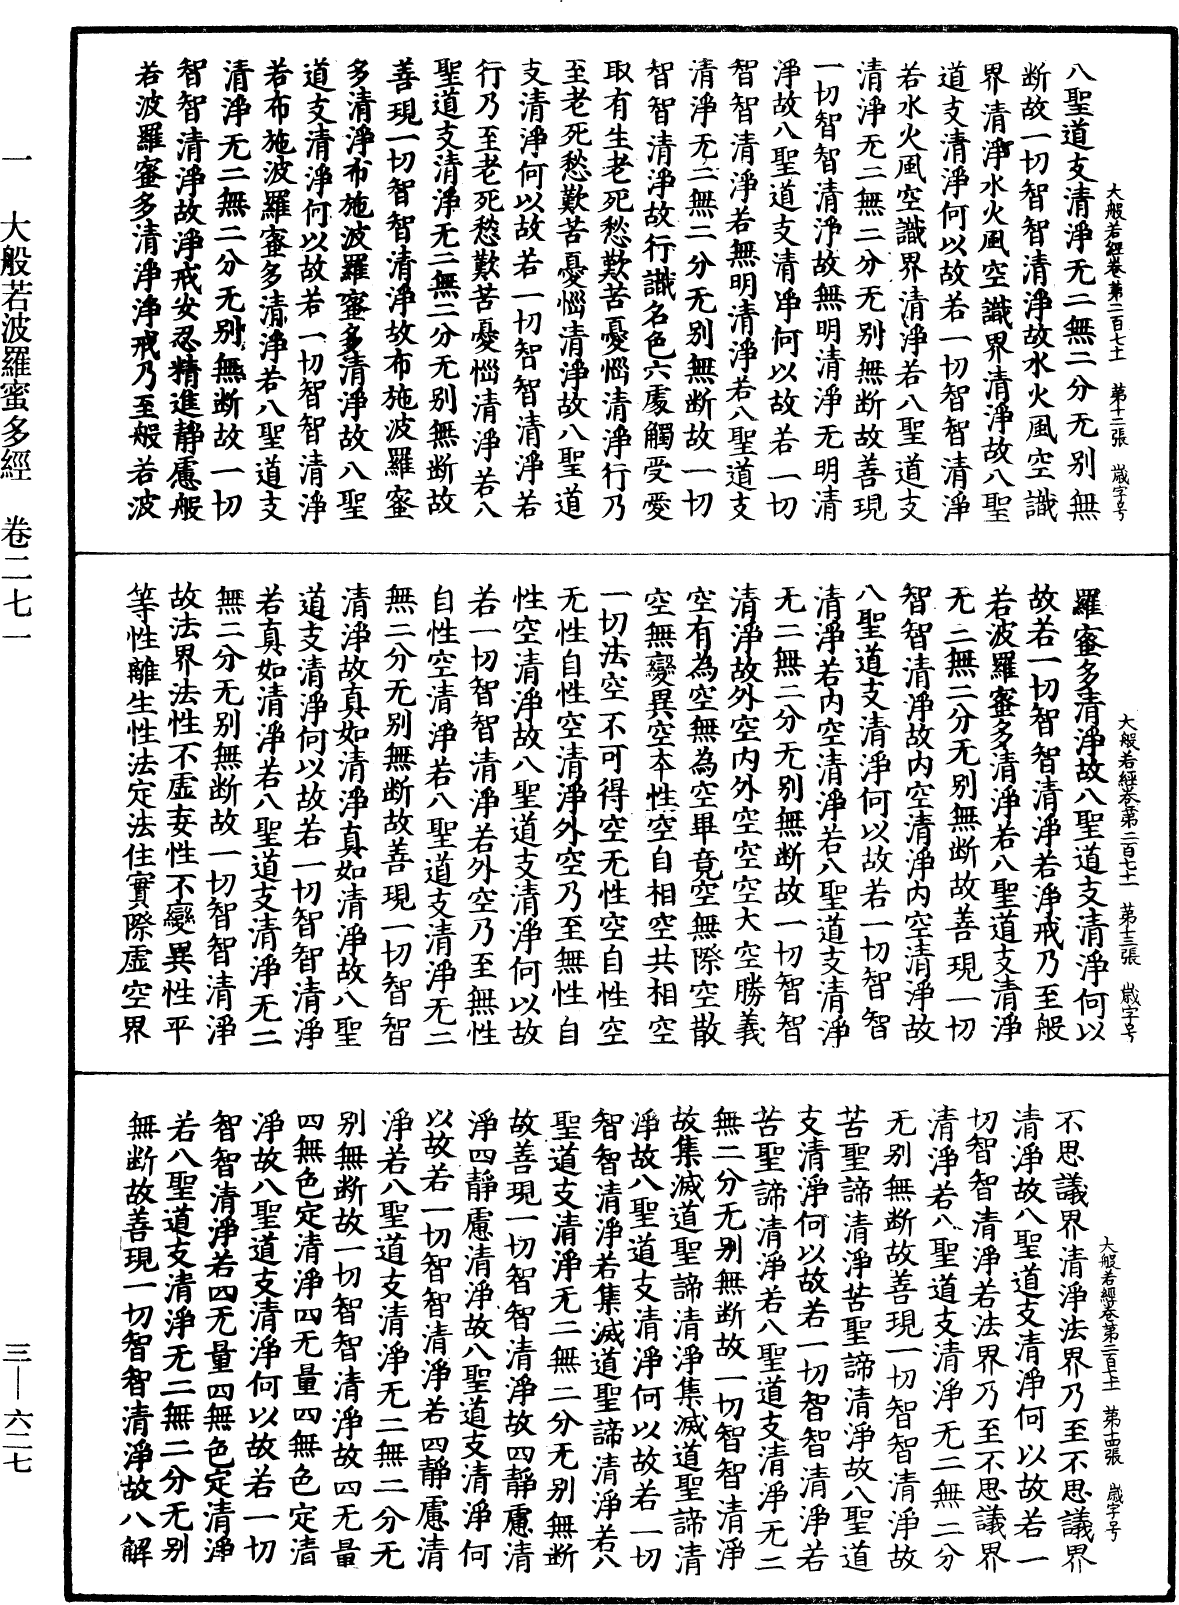 大般若經卷第二百七十一　第十二張　崴字号
八聖道支清淨无二無二分无别無
断故一切智智清淨故水火風空識
界清淨水火風空識界清淨故八聖
道支清淨何以故若一切智智清淨
若水火風空識界清淨若八聖道支
清淨无二無二分无别無断故善現
一切智智清淨故無明清淨无明清
淨故八聖道支清淨何以故若一切
智智清淨若無明清淨若八聖道支
清淨无二無二分无别無断故一切
智智清淨故行識名色六處觸受愛
取有生老死愁歎苦憂惱清淨行乃
至老死愁歎苦憂惱清淨故八聖道
支清淨何以故若一切智智清淨若
行乃至老死愁歎苦憂惱清淨若八
聖道支清淨无二無二分无别無断故
善現一切智智清淨故布施波羅蜜
多清淨布施波羅蜜多清淨故八聖
道支清淨何以故若一切智智清淨
若布施波羅蜜多清淨若八聖道支
清淨无二無二分无别無断故一切
智智清淨故淨戒安忍精進靜慮般
若波羅蜜多清淨淨戒乃至般若波
大般若經卷第二百七十一　第十三張　崴字号
羅蜜多清淨故八聖道支清淨何以
故若一切智智清淨若淨戒乃至般
若波羅蜜多清淨若八聖道支清淨
无二無二分无别無断故善現一切
智智清淨故内空清淨内空清淨故
八聖道支清淨何以故若一切智智
清淨若内空清淨若八聖道支清淨
无二無二分无别無断故一切智智
清淨故外空内外空空空大空勝義
空有為空無為空畢竟空無際空散
空無變異空本性空自相空共相空
一切法空不可得空无性空自性空
无性自性空清淨外空乃至無性自
性空清淨故八聖道支清淨何以故
若一切智智清淨若外空乃至無性
自性空清淨若八聖道支清淨无二
無二分无别無断故善現一切智智
清淨故真如清淨真如清淨故八聖
道支清淨何以故若一切智智清淨
若真如清淨若八聖道支清淨无二
無二分无别無断故一切智智清淨
故法界法性不虛妄性不變異性平
等性離生性法定法住實際虛空界
大般若經卷第二百七十一　第十四張　崴字号
不思議界清淨法界乃至不思議界
清淨故八聖道支清淨何以故若一
切智智清淨若法界乃至不思議界
清淨若八聖道支清淨无二無二分
无别無断故善現一切智智清淨故
苦聖諦清淨苦聖諦清淨故八聖道
支清淨何以故若一切智智清淨若
苦聖諦清淨若八聖道支清淨无二
無二分无别無断故一切智智清淨
故集滅道聖諦清淨集滅道聖諦清
淨故八聖道支清淨何以故若一切
智智清淨若集滅道聖諦清淨若八
聖道支清淨无二無二分无别無断
故善現一切智智清淨故四靜慮清
淨四靜慮清淨故八聖道支清淨何
以故若一切智智清淨若四靜慮清
淨若八聖道支清淨无二無二分无
别無断故一切智智清淨故四无量
四無色定清淨四无量四無色定清
淨故八聖道支清淨何以故若一切
智智清淨若四无量四無色定清淨
若八聖道支清淨无二無二分无别
無断故善現一切智智清淨故八解
一　大般若波羅蜜多經　卷二七一
三—六二七